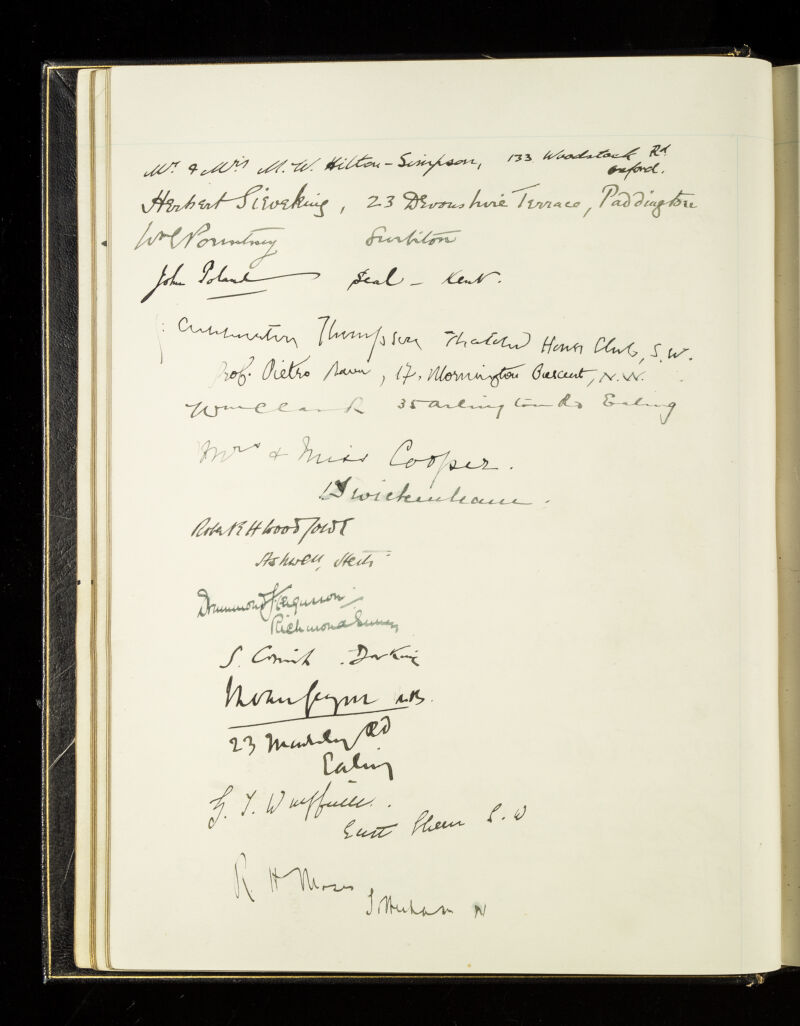 Mr. & Mrs M. W. Hilton-Simpson, 133 Woodstock Rd
Oxford.
Herbert Sieveking, 23 Devonshire Terrace, Paddington
Surbiton
John Poland Seal - Kent.
Thompson Thatched House Club, S.W.
Prof. Pietro 17, Mornington Crescent, N.W.
35 Arlington Rd Ealing
Mrs & Miss Cooper.
Twickenham.
Robert H Woodforde
Ashwell, Herts
Drummond Fergusson
Richmond Surrey
S. Cornish. Dorking
23 Rd
Ealing
G. T.
East Sheen S.W
R H Moses
Tottenham N